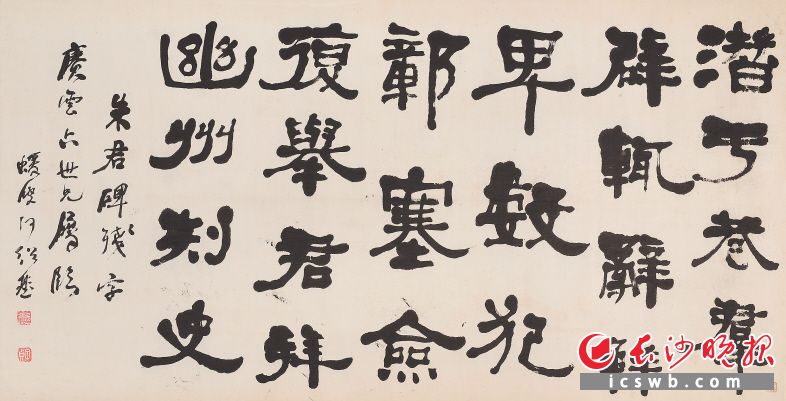 潛于巷群
辟輒辭鮮
卑數犯
鄣塞僉
復舉君拜
幽州刺史
朱君碑殘字
雲六世兄屬臨
蝯叟何紹基
长沙晚报
icswb.com